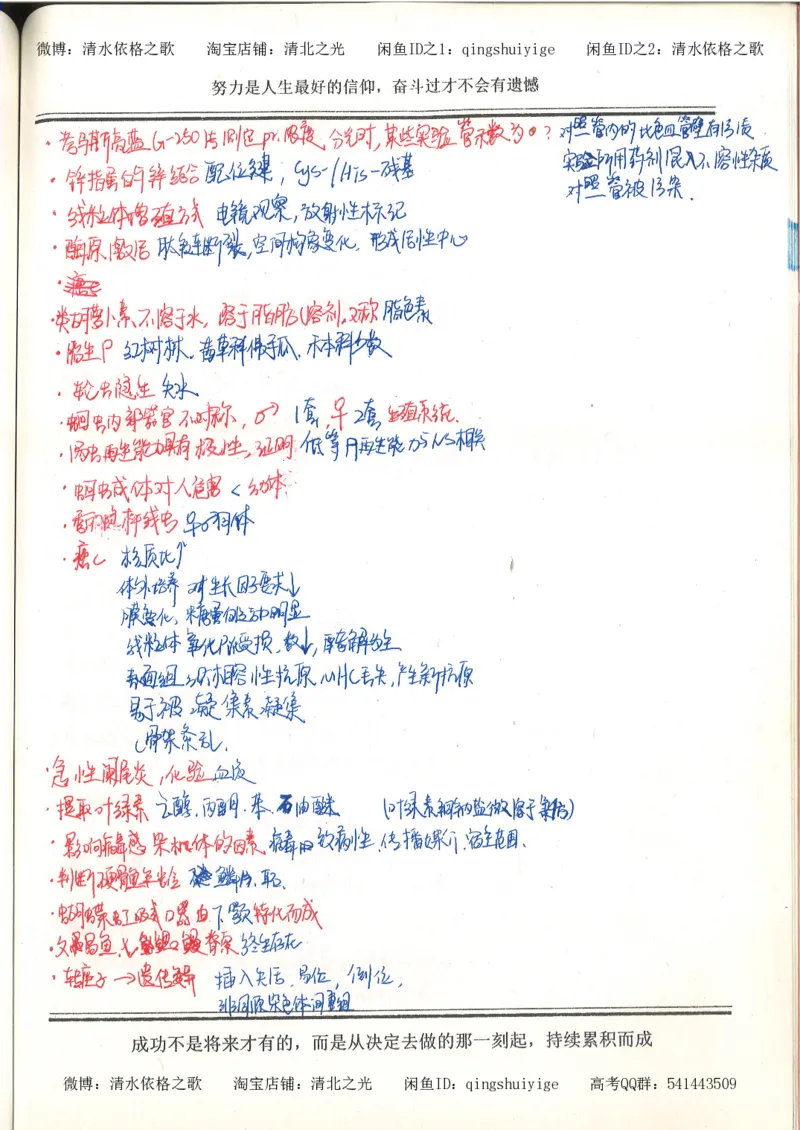 微博：清水依格之歌 淘宝店铺：清北之光 闲鱼ID之1：qingshuiyige 闲鱼ID之2：清水依格之歌
努力是人生最好的信仰，奋斗过才不会有遗憾
·考马斯亮蓝G-250法测定pr.浓度，分光时，某些实验管示数为0？对照管内的比色皿管壁有污渍
实验所用药剂混入不溶性杂质
对照管被污染.
·锌指蛋白的锌结合 配位键，Cys-/His-残基
·线粒体增殖方式 电镜观察，放射性标记
·酶原激活 肽链断裂，空间构象变化，形成活性中心
·类胡萝卜素，不溶于水，溶于脂肪溶剂，又称脂色素
·胎生P 红树林、葫芦科佛手瓜、禾本科少数
·轮虫隐生 失水
·蛔虫内部器官不对称，♂ 1套，♀ 2套 生殖系统.
·涡虫再生能力具有极性，证明 低等A再生能力与NS相关
·蛔虫成体对人危害 < 幼体
·杆线虫 ♀♂同体
·癌C 核质比↑
体外培养 对生长因子要求↓
膜变化，糖蛋白
线粒体 氧化P受损，数↓，酵解为主
表面组织相容性抗原，MHC丢失，产生新抗原
易于被凝集素凝集
C骨架紊乱.
·急性阑尾炎，化验血液
·提取叶绿素 乙醇、丙酮、苯、石油醚 (叶绿素铜钠盐微溶于氯仿)
·影响病毒感染机体的因素 病毒的致病性、传播媒介、宿主范围.
·判断硬骨鱼年龄 鳞片、耳.
·蝴蝶虹吸式口器由下颚特化而成
·文昌鱼、七鳃鳗 脊索 终生存在
·转座子→遗传 插入失活、易位，倒位，
非同源染色体间重组
成功不是将来才有的，而是从决定去做的那一刻起，持续累积而成
微博：清水依格之歌 淘宝店铺：清北之光 闲鱼ID：qingshuiyige 高考QQ群：541443509